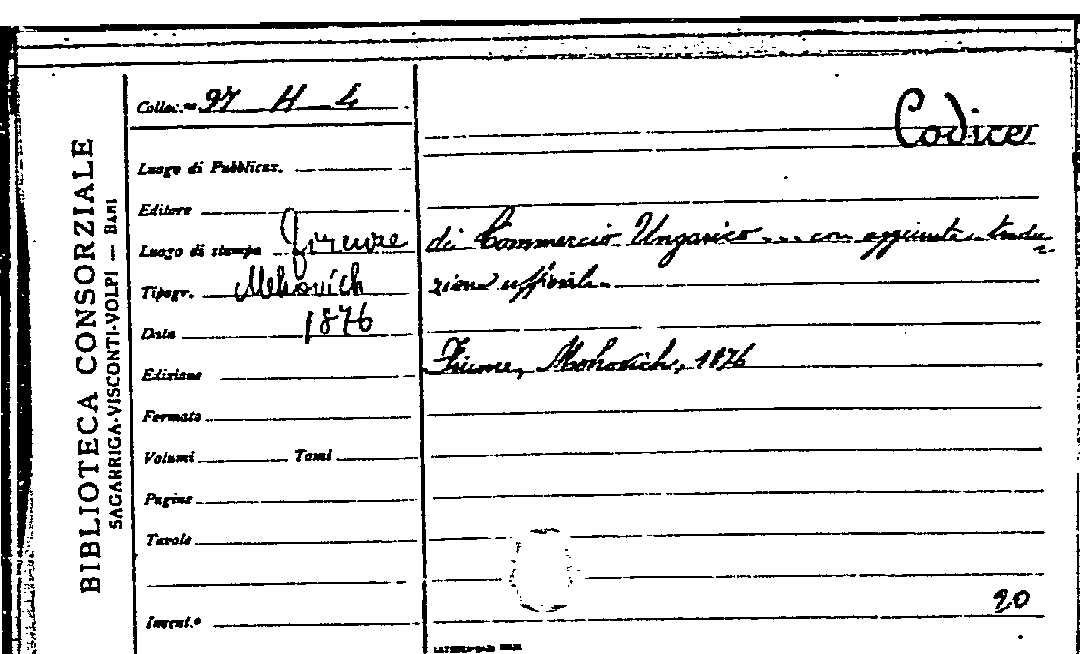 BIBLIOTECA CONSORZIALE
SAGARRIGA-VISCONTI-VOLPI — BARI
Colloc.ne 97 H 4
Codice
Luogo di Pubblicaz.
Editore
Luogo di stampa Firenze
di Commercio Ungarico ... con aggiunta tradu
Tipogr. Mohovich
zione ufficiale.
Data 1876
Fiume, Mohovich, 1876
Edizione
Formato
Volumi Tomi
Pagine
Tavole
20
Invent.o